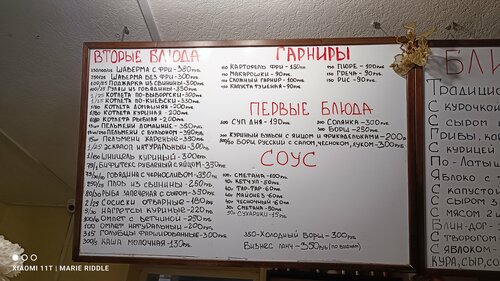 ВТОРЫЕ БЛЮДА
ШАВЕРМА С ФРИ-380РУБ.
ШАВЕРМА БЕЗ ФРИ-300РУБ.
ПОДЖАРКА ИЗ СВИНИНЫ-300РУБ.
ГУЛЯШ ИЗ ГОВЯДИНЫ-350РУБ.
КОТЛЕТА ПО-ВЫБОРГСКИ-300РУБ.
КОТЛЕТА ПО-КИЕВСКИ-330РУБ.
КОТЛЕТА ДОМАШНЯЯ-200РУБ.
КОТЛЕТА КУРИНАЯ-200РУБ.
КОТЛЕТА РЫБНАЯ-200РУБ.
ПЕЛЬМЕНИ ДОМАШНИЕ
ПЕЛЬМЕНИ С БУЛЬОНОМ
ПЕЛЬМЕНИ ЖАРЕНЫЕ
ЭСКАЛОП НАТУРАЛЬНЫЙ-300РУБ.
ШНИЦЕЛЬ КУРИНЫЙ-300РУБ.
БИФШТЕКС РУБЛЕНЫЙ С ЯЙЦОМ
ГОВЯДИНА С ЧЕРНОСЛИВОМ-350РУБ.
ПЛОВ ИЗ СВИНИНЫ-260РУБ.
РЫБА ЗАПЕЧЕНАЯ С СЫРОМ-350РУБ.
СОСИСКИ ОТВАРНЫЕ-180РУБ.
НАГГЕТСЫ КУРИНЫЕ-220РУБ.
ОМЛЕТ С ВЕТЧИНОЙ-250РУБ.
ОМЛЕТ НАТУРАЛЬНЫЙ-200РУБ.
ГОЛУБЦЫ ФАРШИРОВАННЫЕ-300РУБ.
КАША МОЛОЧНАЯ-130РУБ.
ГАРНИРЫ
КАРТОФЕЛЬ ФРИ-150РУБ.
МАКАРОШКИ-90РУБ.
СЛОЖНЫЙ ГАРНИР-100РУБ.
КАПУСТА ТУШЕНАЯ-90РУБ.
ПЮРЕ-100РУБ.
ГРЕЧА-90РУБ.
РИС-90РУБ.
ПЕРВЫЕ БЛЮДА
СУП ДНЯ-190РУБ.
СОЛЯНКА-300РУБ.
БОРЩ-250РУБ.
КУРИНЫЙ БУЛЬОН С ЯЙЦОМ И ФРИКАДЕЛЬКАМИ-200РУБ.
БОРЩ РУССКИЙ С САЛОМ, ЧЕСНОКОМ, ЛУКОМ-300РУБ.
СОУС
СМЕТАНА-100РУБ.
КЕТЧУП-60РУБ.
ТАР-ТАР-60РУБ.
МАЙОНЕЗ-60РУБ.
ЧЕСНОЧНЫЙ-60РУБ.
СМЕТАНА-50РУБ.
СУХАРИКИ-15РУБ.
350-ХОЛОДНЫЙ БОРЩ-300РУБ.
БИЗНЕС ЛАНЧ-350РУБ
БЛИ
ТРАДИЦИО
С КУРОЧКО
С СЫРОМ
ГРИБЫ, КАП
С КУРИЦЕЙ
ПО-ЛАТЫ
ЯБЛОКО
С КАПУСТО
С СЫРОМ
С МЯСОМ
БЛИН-ДОГ-1
С ТВОРОГОМ
С ЯБЛОКОМ-
КУРА, СЫР, СО
XIAOMI 11T | MARIE RIDDLE